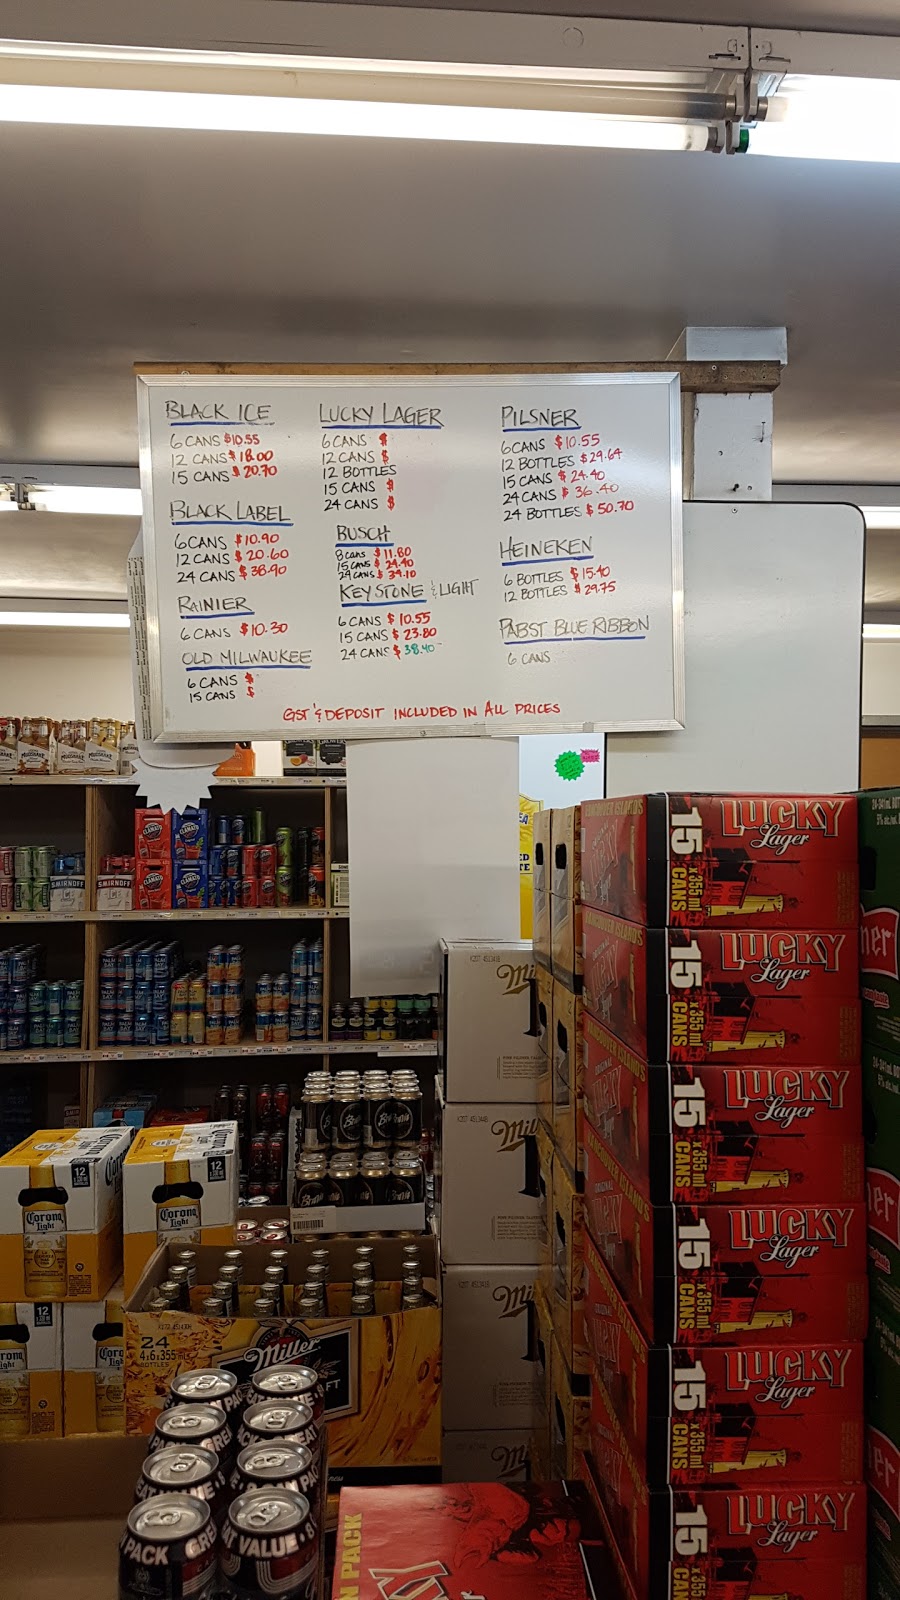 BLACK ICE
6 CANS $10.55
12 CANS $18.00
15 CANS $20.70
BLACK LABEL
6 CANS $10.90
12 CANS $20.60
24 CANS $38.90
RAINIER
6 CANS $10.30
OLD MILWAUKEE
6 CANS $
15 CANS $
LUCKY LAGER
6 CANS $
12 CANS $
12 BOTTLES
15 CANS $
24 CANS $
BUSCH
8 CANS $11.80
15 CANS $24.40
24 CANS $39.10
KEYSTONE & LIGHT
6 CANS $10.55
15 CANS $23.80
24 CANS $38.40
PILSNER
6 CANS $10.55
12 BOTTLES $29.64
15 CANS $24.40
24 CANS $36.40
24 BOTTLES $50.70
HEINEKEN
6 BOTTLES $15.40
12 BOTTLES $29.75
PABST BLUE RIBBON
6 CANS
GST & DEPOSIT INCLUDED IN ALL PRICES
CLAMATO
CLAMATO
SMIRNOFF
SMIRNOFF
VANCOUVER ISLAND'S
15 x 355 ml CANS
LUCKY
Lager
15 x 355 ml CANS
LUCKY
Lager
15 x 355 ml CANS
LUCKY
Lager
15 x 355 ml CANS
LUCKY
Lager
15 x 355 ml CANS
LUCKY
Lager
15
CANS
LUCKY
Lager
12
Corona
Light
12
Corona
Light
12
24
4x6x355 mL
BOTTLES
Miller
PACK
VALUE • 8
N PACK